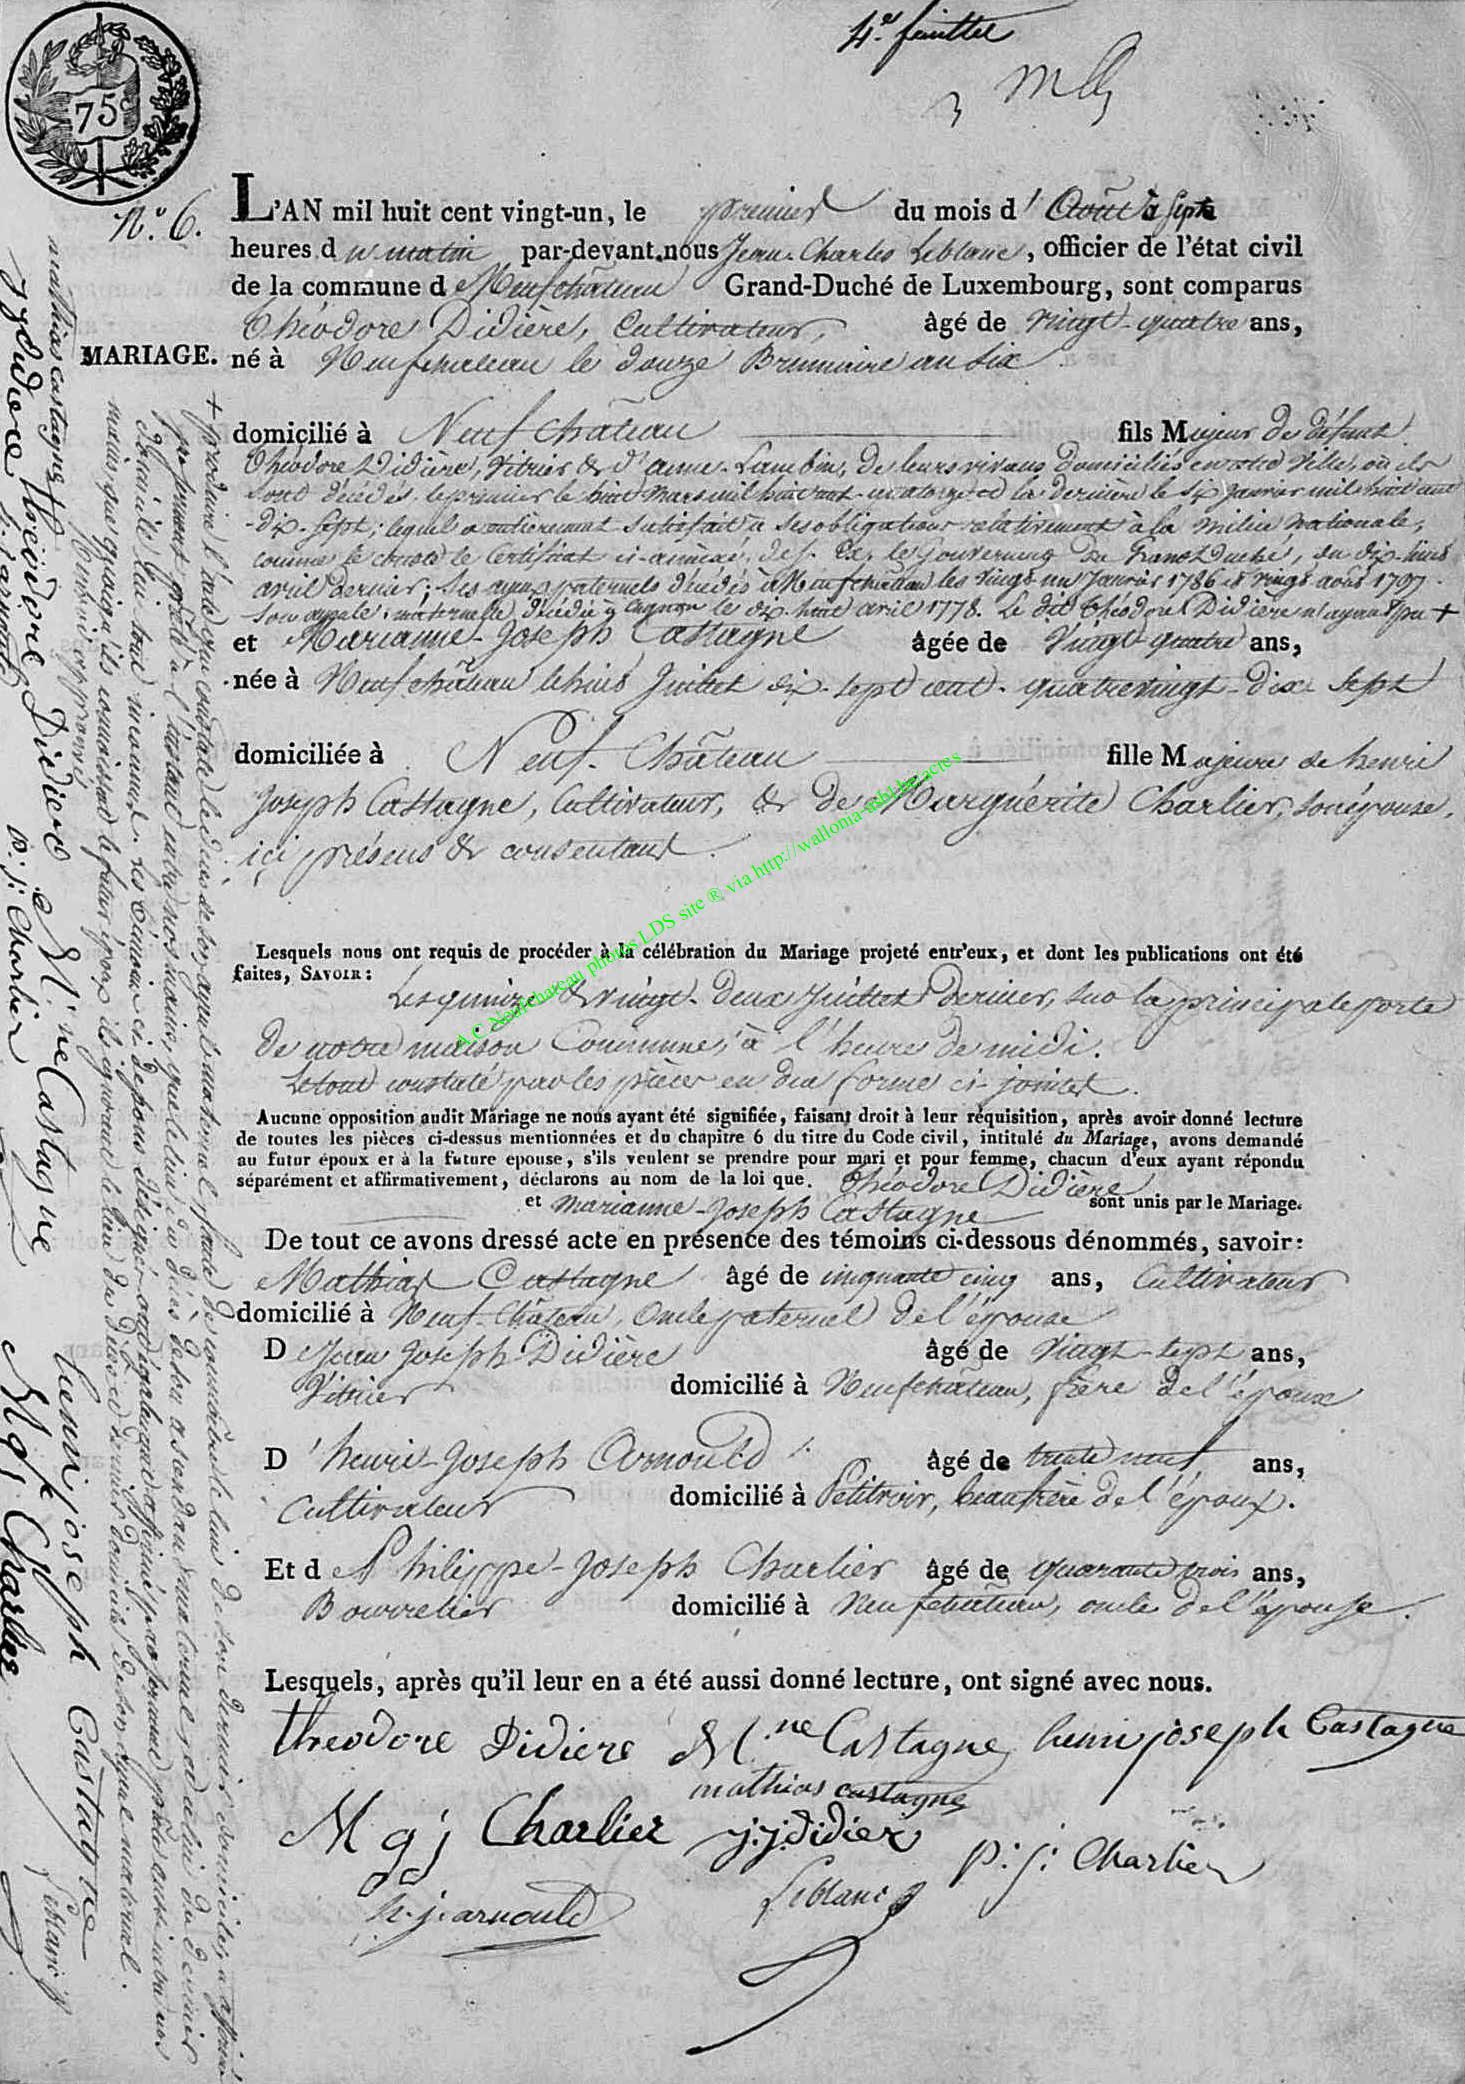 4.e feuillet
75c
N.° 6.
L'AN mil huit cent vingt-un, le premier du mois d'Août à sept
heures du matin par-devant nous Jean-Charles Leblanc, officier de l'état civil
de la commune de Neufchâteau Grand-Duché de Luxembourg, sont comparus
Théodore Didière, Cultivateur, âgé de vingt-quatre ans,
MARIAGE. né à Neufchateau le douze Brumaire an six
domicilié à Neufchâteau fils Majeur de défunt
Théodore Didière, Vitrier & d'anne Lambin, de leurs vivans domiciliés en cette Ville, où ils
sont décédés le premier le huit Mars mil huit cent quatorze et la dernière le six Janvier mil huit cent
-dix-sept; lequel a entièrement satisfait à ses obligations relativement à la milice nationale,
comme le constate le Certificat ci-annexé, de S. Ex. le Gouverneur du Grand Duché, du dix-huit
avril dernier; ses ayeux paternels décédés à Neufchâteau les vingt un Janvier 1786 & vingt août 1797.
son ayeule maternelle décédée à Cugnon le dix huit avril 1778. Le dit Théodore Didière n'ayant pu +
et Marianne-Joseph Castagne âgée de Vingt-quatre ans,
née à Neufchâteau le huit Juillet dix-sept cent-quatrevingt-dix-sept
domiciliée à Neuf-Château fille Majeure de henri
Joseph Castagne, Cultivateur, & de Marguérite Charlier, son épouse,
ici présens & consentans.
Lesquels nous ont requis de procéder à la célébration du Mariage projeté entr'eux, et dont les publications ont été
faites, SAVOIR:
Les quinze & vingt-deux Juillet dernier, sur la principale porte
de notre maison Commune, à l'heure de midi.
Le tout constaté par les pièces en due forme ci-jointes.
Aucune opposition audit Mariage ne nous ayant été signifiée, faisant droit à leur réquisition, après avoir donné lecture
de toutes les pièces ci-dessus mentionnées et du chapitre 6 du titre du Code civil, intitulé du Mariage, avons demandé
au futur époux et à la future epouse, s'ils veulent se prendre pour mari et pour femme, chacun d'eux ayant répondu
séparément et affirmativement, déclarons au nom de la loi que. Théodore Didière
et marianne-Joseph Castagne sont unis par le Mariage.
De tout ce avons dressé acte en présence des témoins ci-dessous dénommés, savoir:
Mathias Castagne âgé de cinquante cinq ans, Cultivateur
domicilié à Neuf-Château, oncle paternel de l'épouse
De Jean Joseph Didière âgé de Vingt-sept ans,
Vitrier domicilié à Neufchâteau, frère de l'époux
D'henri-Joseph Arnould âgé de trente neuf ans,
Cultivateur domicilié à Petitvoir, beaufrère de l'époux.
Et de Philippe-Joseph Charlier âgé de quarante trois ans,
Bourrelier domicilié à Neufchâteau, oncle de l'épouse.
Lesquels, après qu'il leur en a été aussi donné lecture, ont signé avec nous.
theodore Didiere M.ne Castagne henri joseph Castagne
mathias castagne
M g j Charlier j.j. didier p: j: Charlier
h.j. arnould Leblanc
+ produire l'acte qui constate le décès de son ayeul maternel, faute de connaître le lieu de son dernier domicile, a affirmé
par serment prêté à l'instant entre nos mains, que le lieu du décès de son ascendant maternel, et celui du dernier
domicile lui sont inconnus. Les témoins ci-dessous désignés ont également affirmé par serment prêté aussi entre nos
mains que quoiqu'ils connoissent le futur époux, ils ignorent le lieu du décès et dernier domicile de son ayeul maternel.
Renvoi approuvé
mathias castagne theodore Didiere M.ne Castagne henri joseph Castagne Leblanc
jjdidier h.j. arnould p: j: Charlier M g j Charlier
A.C Neufchateau photos LDS site ® via http://wallonia-asbl.be/actes